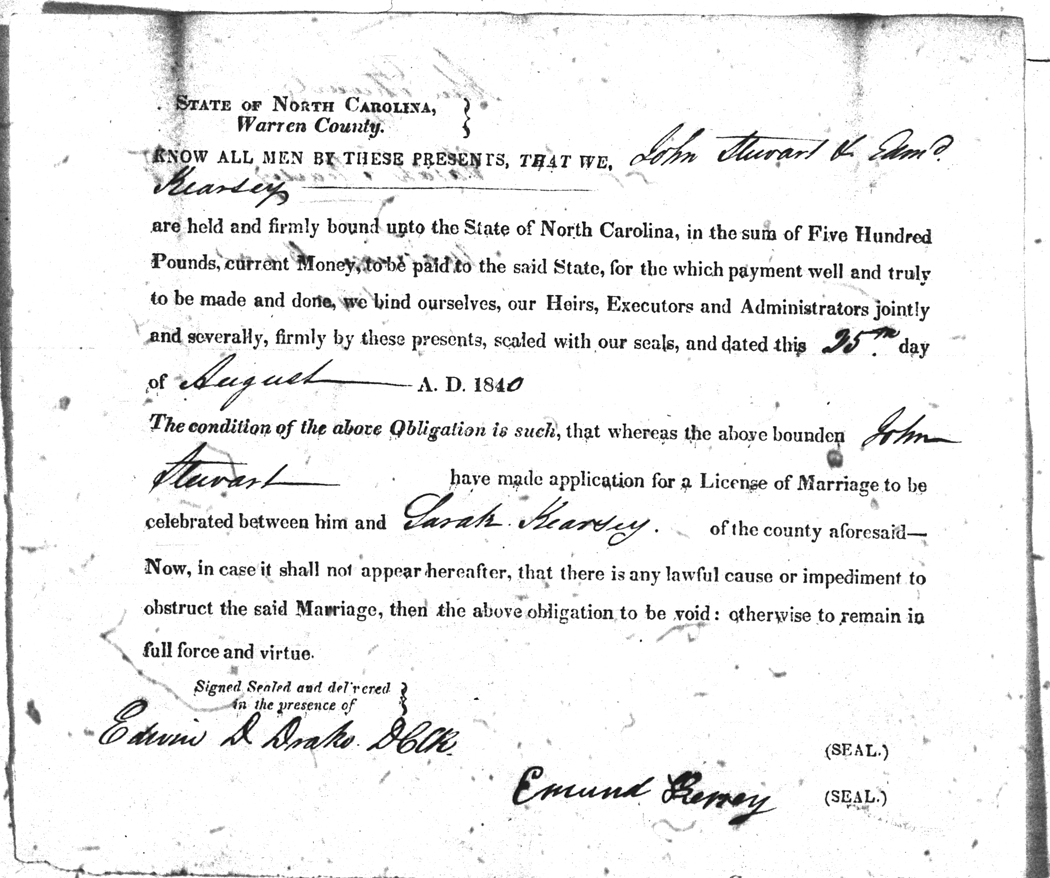 STATE OF NORTH CAROLINA,
Warren County.
KNOW ALL MEN BY THESE PRESENTS, THAT WE, John Stewart & Edmd.
Kearsey
are held and firmly bound unto the State of North Carolina, in the sum of Five Hundred
Pounds, current Money, to be paid to the said State, for the which payment well and truly
to be made and done, we bind ourselves, our Heirs, Executors and Administrators jointly
and severally, firmly by these presents, sealed with our seals, and dated this 25th. day
of August A. D. 1840
The condition of the above Obligation is such, that whereas the above bounden John
Stewart have made application for a License of Marriage to be
celebrated between him and Sarah Kearsey. of the county aforesaid—
Now, in case it shall not appear hereafter, that there is any lawful cause or impediment to
obstruct the said Marriage, then the above obligation to be void: otherwise to remain in
full force and virtue.
Signed Sealed and delivered
in the presence of
Edwin D Drake DClk
(SEAL.)
Emund Kersey (SEAL.)